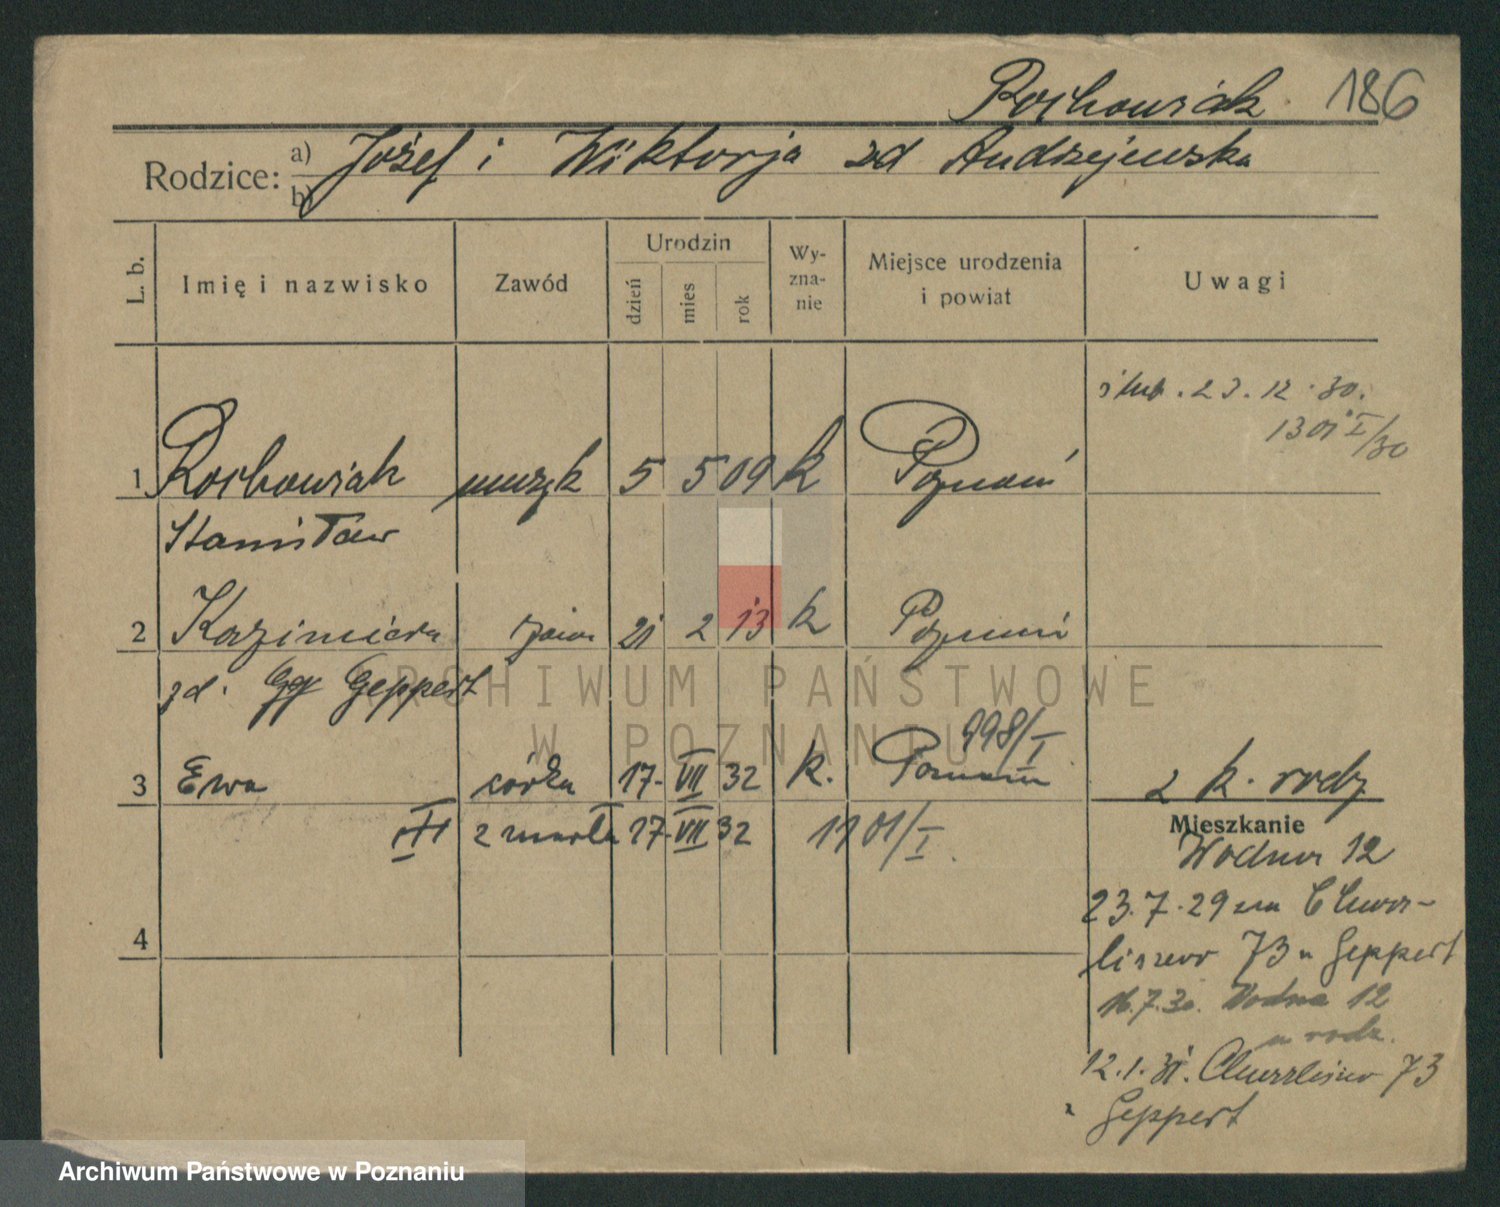 Rochowiak 186
Rodzice: a) Józef i Wiktorja zd Andrzejewska
b)
L. b. Imię i nazwisko Zawód Urodzin dzień mies rok Wy-zna-nie Miejsce urodzenia i powiat Uwagi
ślub. 23. 12. 30.
1301 I/30
1 Rochowiak muzyk 5 5 09 k Poznań
Stanisław
2 Kazimiera żona 21 2 13 k Poznań
zd. Geppert
998/I
3 Ewa córka 17. VII 32 k. Poznań
2 k. rodz
III zmarła 17. VII 32 1101/I
Mieszkanie
Wodna 12
23. 7. 29 na Chwa-
liszewo 73 u Geppert
4
16.7.30. Wodna 12
u rodz.
12. 1. 31. Chwaliszewo 73
Geppert
ARCHIWUM PAŃSTWOWE
W POZNANIU
Archiwum Państwowe w Poznaniu